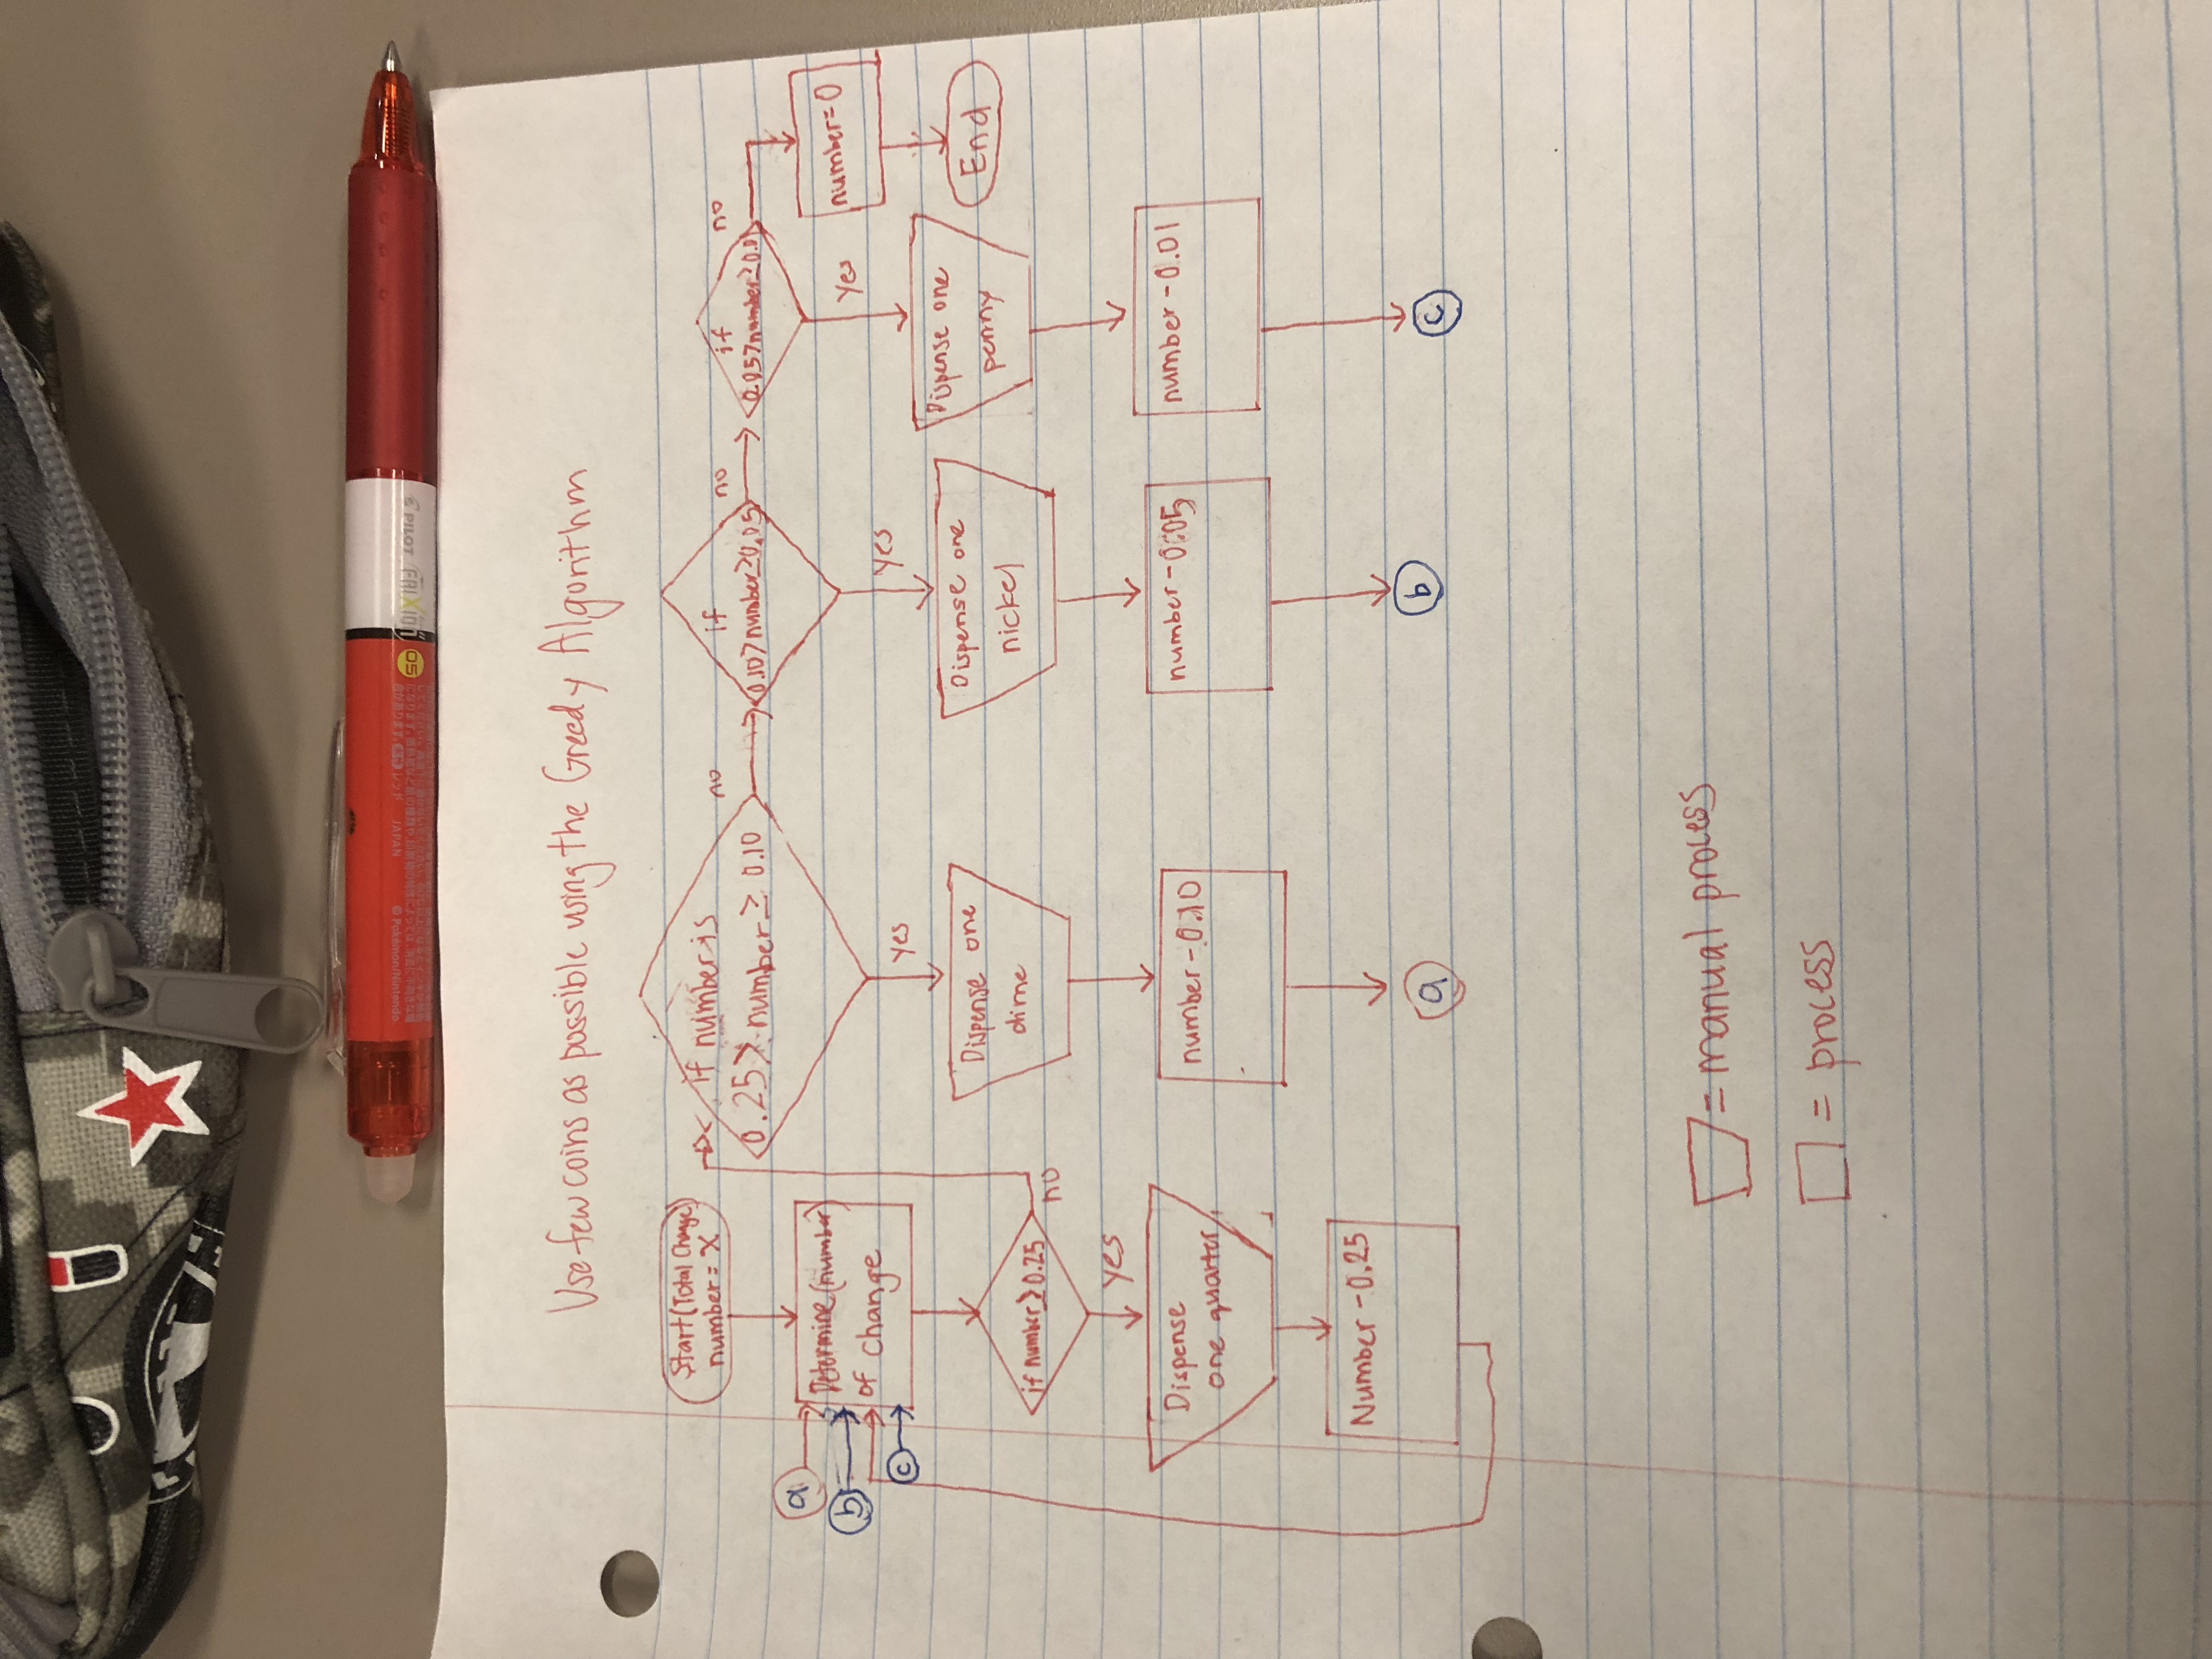 Use few coins as possible using the Greedy Algorithm
Start (Total Change)
number = X
a
b
c
Determine (number)
of change
if number ≥ 0.25
no
yes
Dispense
one quarter
Number - 0.25
if number is
0.25 > number ≥ 0.10
no
yes
Dispense one
dime
number - 0.10
a
if
0.10 > number ≥ 0.05
no
yes
Dispense one
nickel
number - 0.05
b
if
0.05 > number ≥ 0.01
no
yes
Dispense one
penny
number - 0.01
c
number = 0
End
= manual process
= process
PILOT
FRIXION
05
JAPAN
© Pokémon/Nintendo